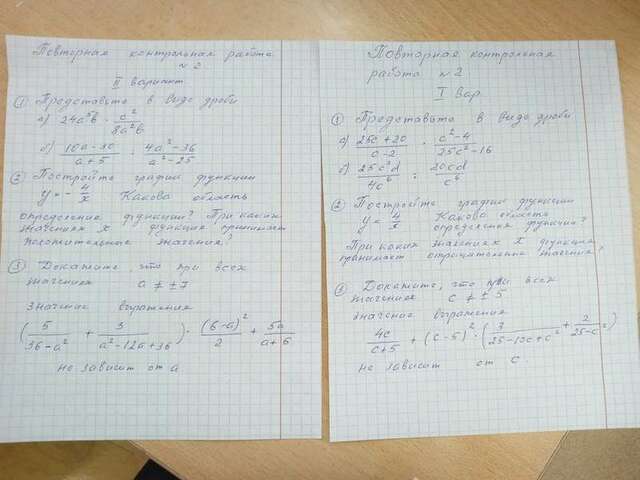 Повторная контрольная работа
№2
II вариант
① Представьте в виде дроби
а) 24a³b · c²/8a²b
б) 10a-30/a+5 : 4a²-36/a²-25
② Постройте график функции
y = - 4/x Какова область
определения функции? При каких
значениях x функция принимает
положительные значения?
③ Докажите, что при всех
значениях a ≠ ±7
значение выражения
(5/36-a² + 3/a²-12a+36) · (6-a)²/2 + 5a/a+6
не зависит от a
Повторная контрольная
работа №2
I вар.
① Представьте в виде дроби
а) 25c+20/c-2 · c²-4/25c²-16
б) 25c³d/4c⁶ : 20cd/c⁶
② Постройте график функции
y = 4/x Какова область
определения функции?
При каких значениях x функция
принимает отрицательные значения?
③ Докажите, что при всех
значениях c ≠ ± 5
значение выражения
4c/c+5 + (c-5)² · (3/25-10c+c² + 2/25-c²)
не зависит от c